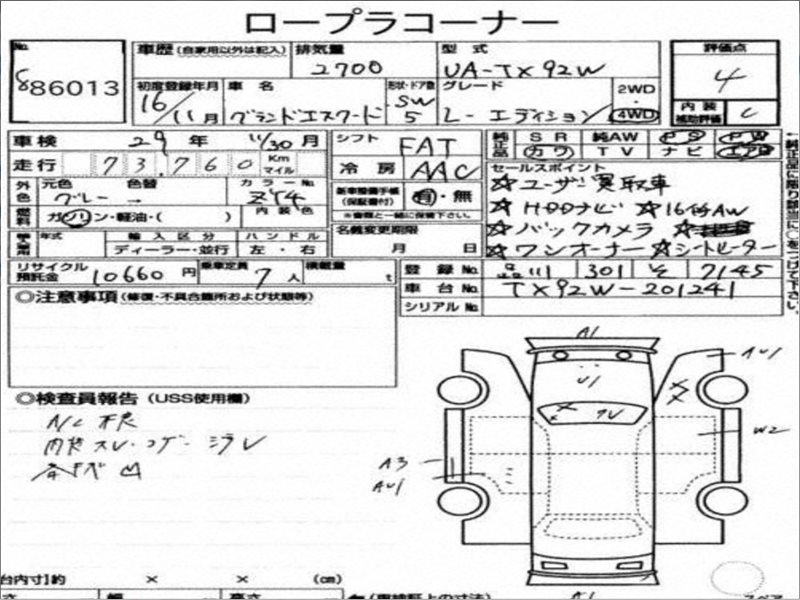 ロープラコーナー
No. 86013
車歴(自家用以外は記入) 排気量 2700 型式 UA-TX92W 評価点 4
初度登録年月 16/11月 車名 グランドエスクード 形状・ドア数 SW 5 グレード L-エディション 2WD 4WD 内装補助評価 C
車検 29年 11/30月 シフト FAT 純正品 SR 純AW PS PW
カワ TV ナビ エアB
走行 73,760 Km マイル 冷房 AAC セールスポイント
外色 元色 グレー 色替 → カラーNo. ZY4 新車整備手帳(保証書付) 有・無 ☆ユーザー買取車
※書類と一緒に保管下さい。 ☆HDDナビ ☆16インAW
燃料 ガソリン・軽油・( ) 内装色 ☆バックカメラ
年式 輸入区分 ハンドル 名義変更期限 ☆ワンオーナー ☆シートヒーター
ディーラー・並行 左・右 月 日
リサイクル預託金 10660円 乗車定員 7人 積載量 t 登録No. 301 7145
車台No. TX92W-201241
シリアルNo.
◎注意事項(修復・不具合箇所および状態等)
◎検査員報告(USS使用欄)
A/C不良
内装スレ・コゲ
A1
AU1
U1
W2
A3
AU1
A1
台内寸】約 × × (cm)
←純正品に限り該当に○をつけて下さい。